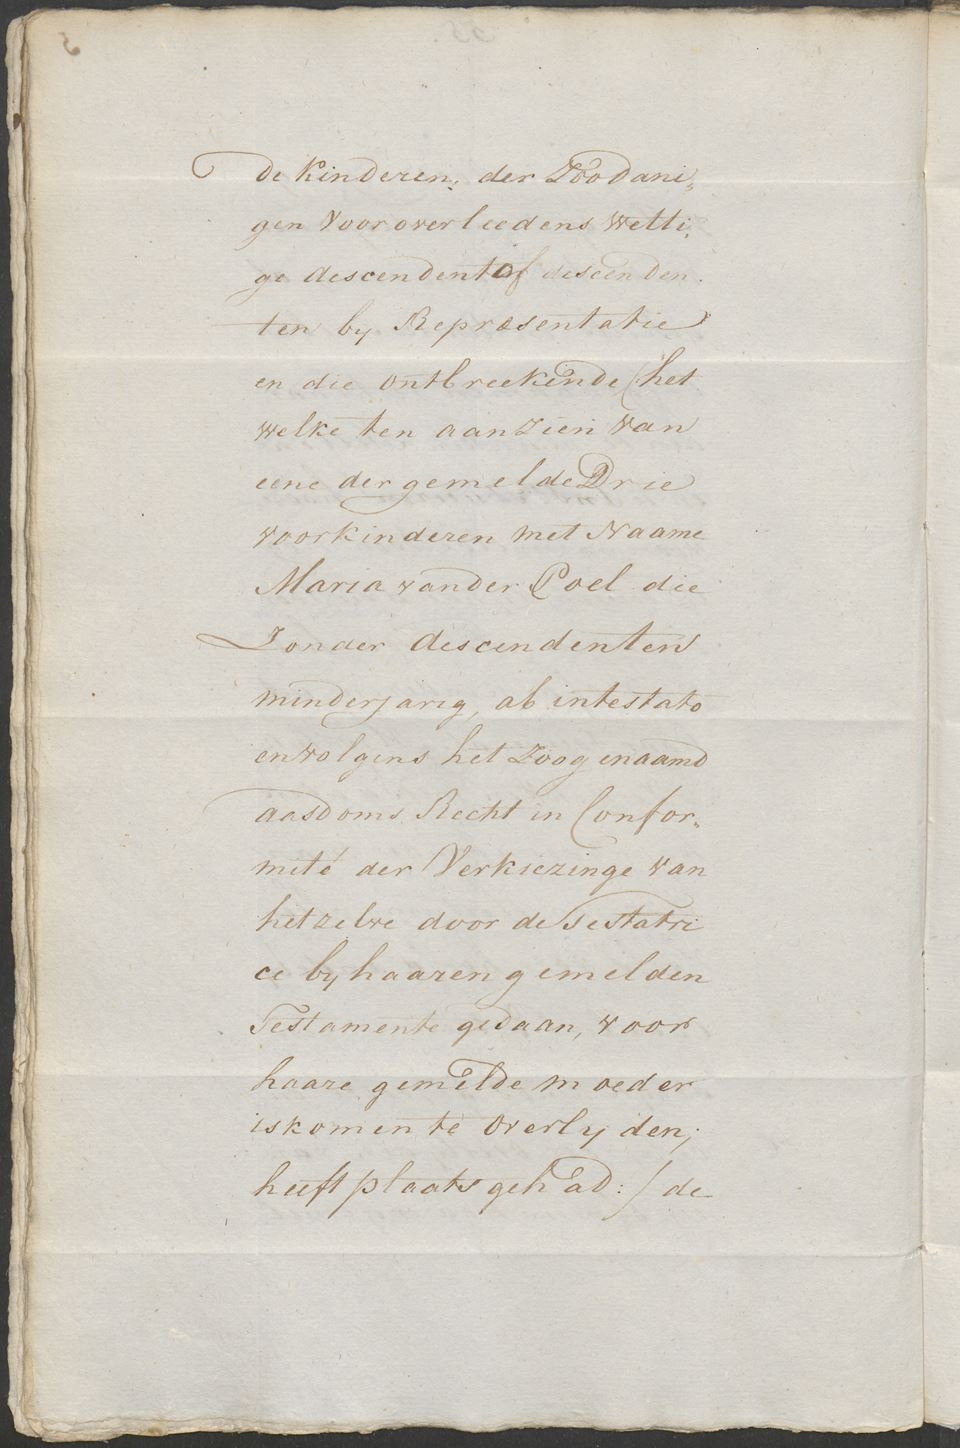 de kinderen, der Zoodani„
gen Vooroverleedens wetti„
ge descendent of descenden„
ten by Repræsentatie
en die ontbreekende (het
welke ten aanzien van
eene der gemelde Drie
voorkinderen met Naame
Maria vander Poel die
Zonder descendenten
minderjarig, ab intestato
en volgens het Zoogenaamd
aasdoms Recht in Confor„
mité der Verkiezinge van
hetzelve door de Testatri
ce by haaren gemelden
Testamente gedaan, voor
haare gemelde moeder
is komen te overlyden,
heeft plaats gehad:) de